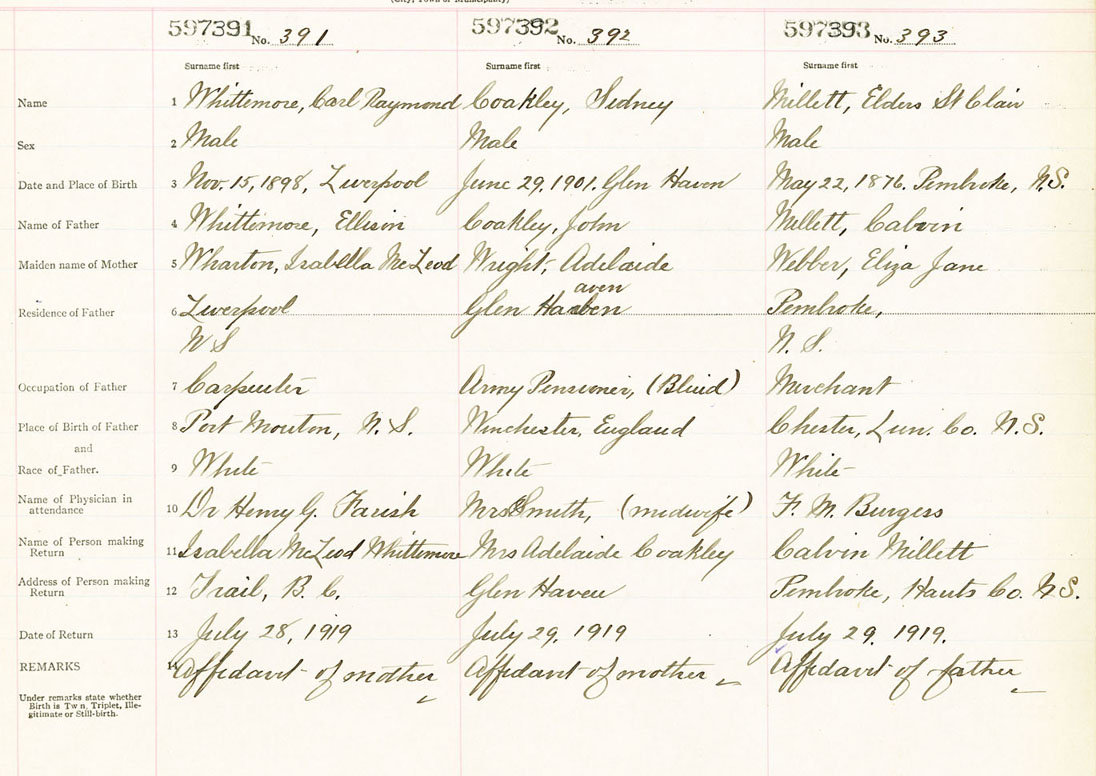 (City, Town or Municipality)
597391 No. 391 597392 No. 392 597393 No. 393
Surname first Surname first Surname first
Name 1 Whittemore, Carl Raymond Coakley, Sidney Millett, Elders St Clair
Sex 2 Male Male Male
Date and Place of Birth 3 Nov. 15, 1898, Liverpool June 29, 1901. Glen Haven May 22, 1876. Pembroke, N.S.
Name of Father 4 Whittemore, Ellison Coakley, John Millett, Calvin
Maiden name of Mother 5 Wharton, Isabella McLeod Wright, Adelaide Webber, Eliza Jane
aven
Residence of Father 6 Liverpool Glen Pembroke,
N S N. S.
Occupation of Father 7 Carpenter Army Pensioner, (Blind) Merchant
Place of Birth of Father 8 Port Mouton, N. S. Winchester, England Chester, Lun. Co. N.S.
and
Race of Father. 9 White White White
Name of Physician in
attendance 10 Dr Henry G. Farish Mrs Smith, (midwife) F. M. Burgess
Name of Person making
Return 11 Isabella McLeod Whittemore Mrs Adelaide Coakley Calvin Millett
Address of Person making
Return 12 Trail, B. C. Glen Haven Pembroke, Hants Co. N.S.
Date of Return 13 July 28, 1919 July 29, 1919 July 29. 1919.
REMARKS 14 Affidavit of mother Affidavit of mother Affidavit of father
Under remarks state whether
Birth is Twin, Triplet, Ille-
gitimate or Still-birth.